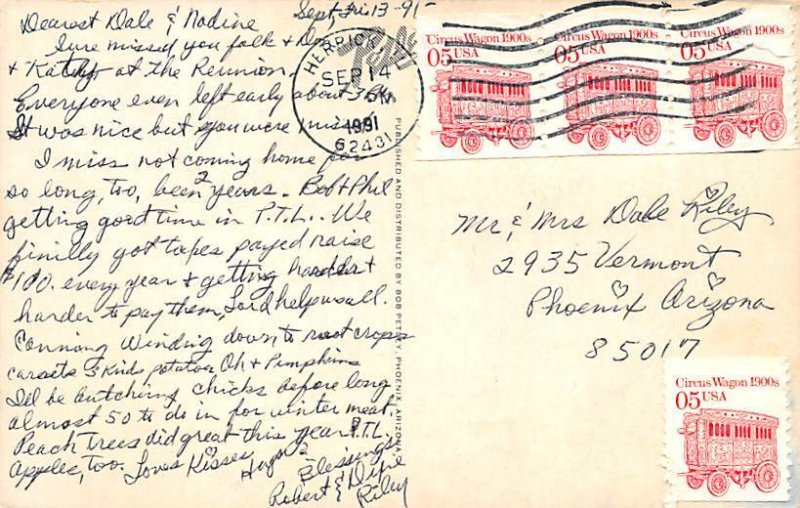 Sept, Fri. 13 - 91
Dearest Dale & Nadine
Sure missed you folk &
& Kathy at the Reunion.
Everyone even left early about 3 PM.
It was nice but you were missed
I miss not coming home for
so long, too, been 2 years. Bob & Phil
getting good time in P.T.L.. We
finilly got taxes payed raise
$100. every year & getting harder &
harder to pay them, Lord help us all.
Canning winding down to root crops
carrots 3 kinds potatoes Oh & Pumpkins
I'll be butching chicks before long
almost 50 to do in for winter meat.
Peach trees did great this year P.T.L.
Apples, too. Loves Kisses Hugs
Blessings
Robert & Dixie
Riley
HERRICK, IL
SEP 14
PM
1991
62431
PUBLISHED AND DISTRIBUTED BY BOB PETLEY, PHOENIX, ARIZONA
Circus Wagon 1900s
05 USA
Circus Wagon 1900s
05 USA
Circus Wagon 1900s
05 USA
Mr & Mrs Dale Riley
2935 Vermont
Phoenix Arizona
85017
Circus Wagon 1900s
05 USA